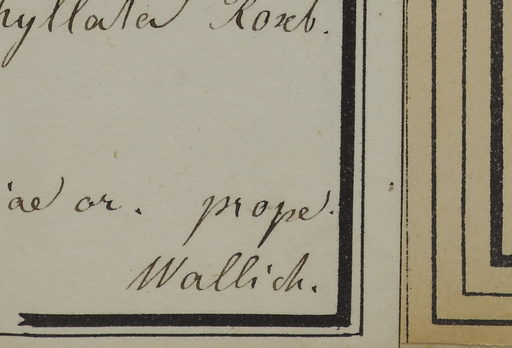 hyllata Roxb.
iae or. prope
Wallich.